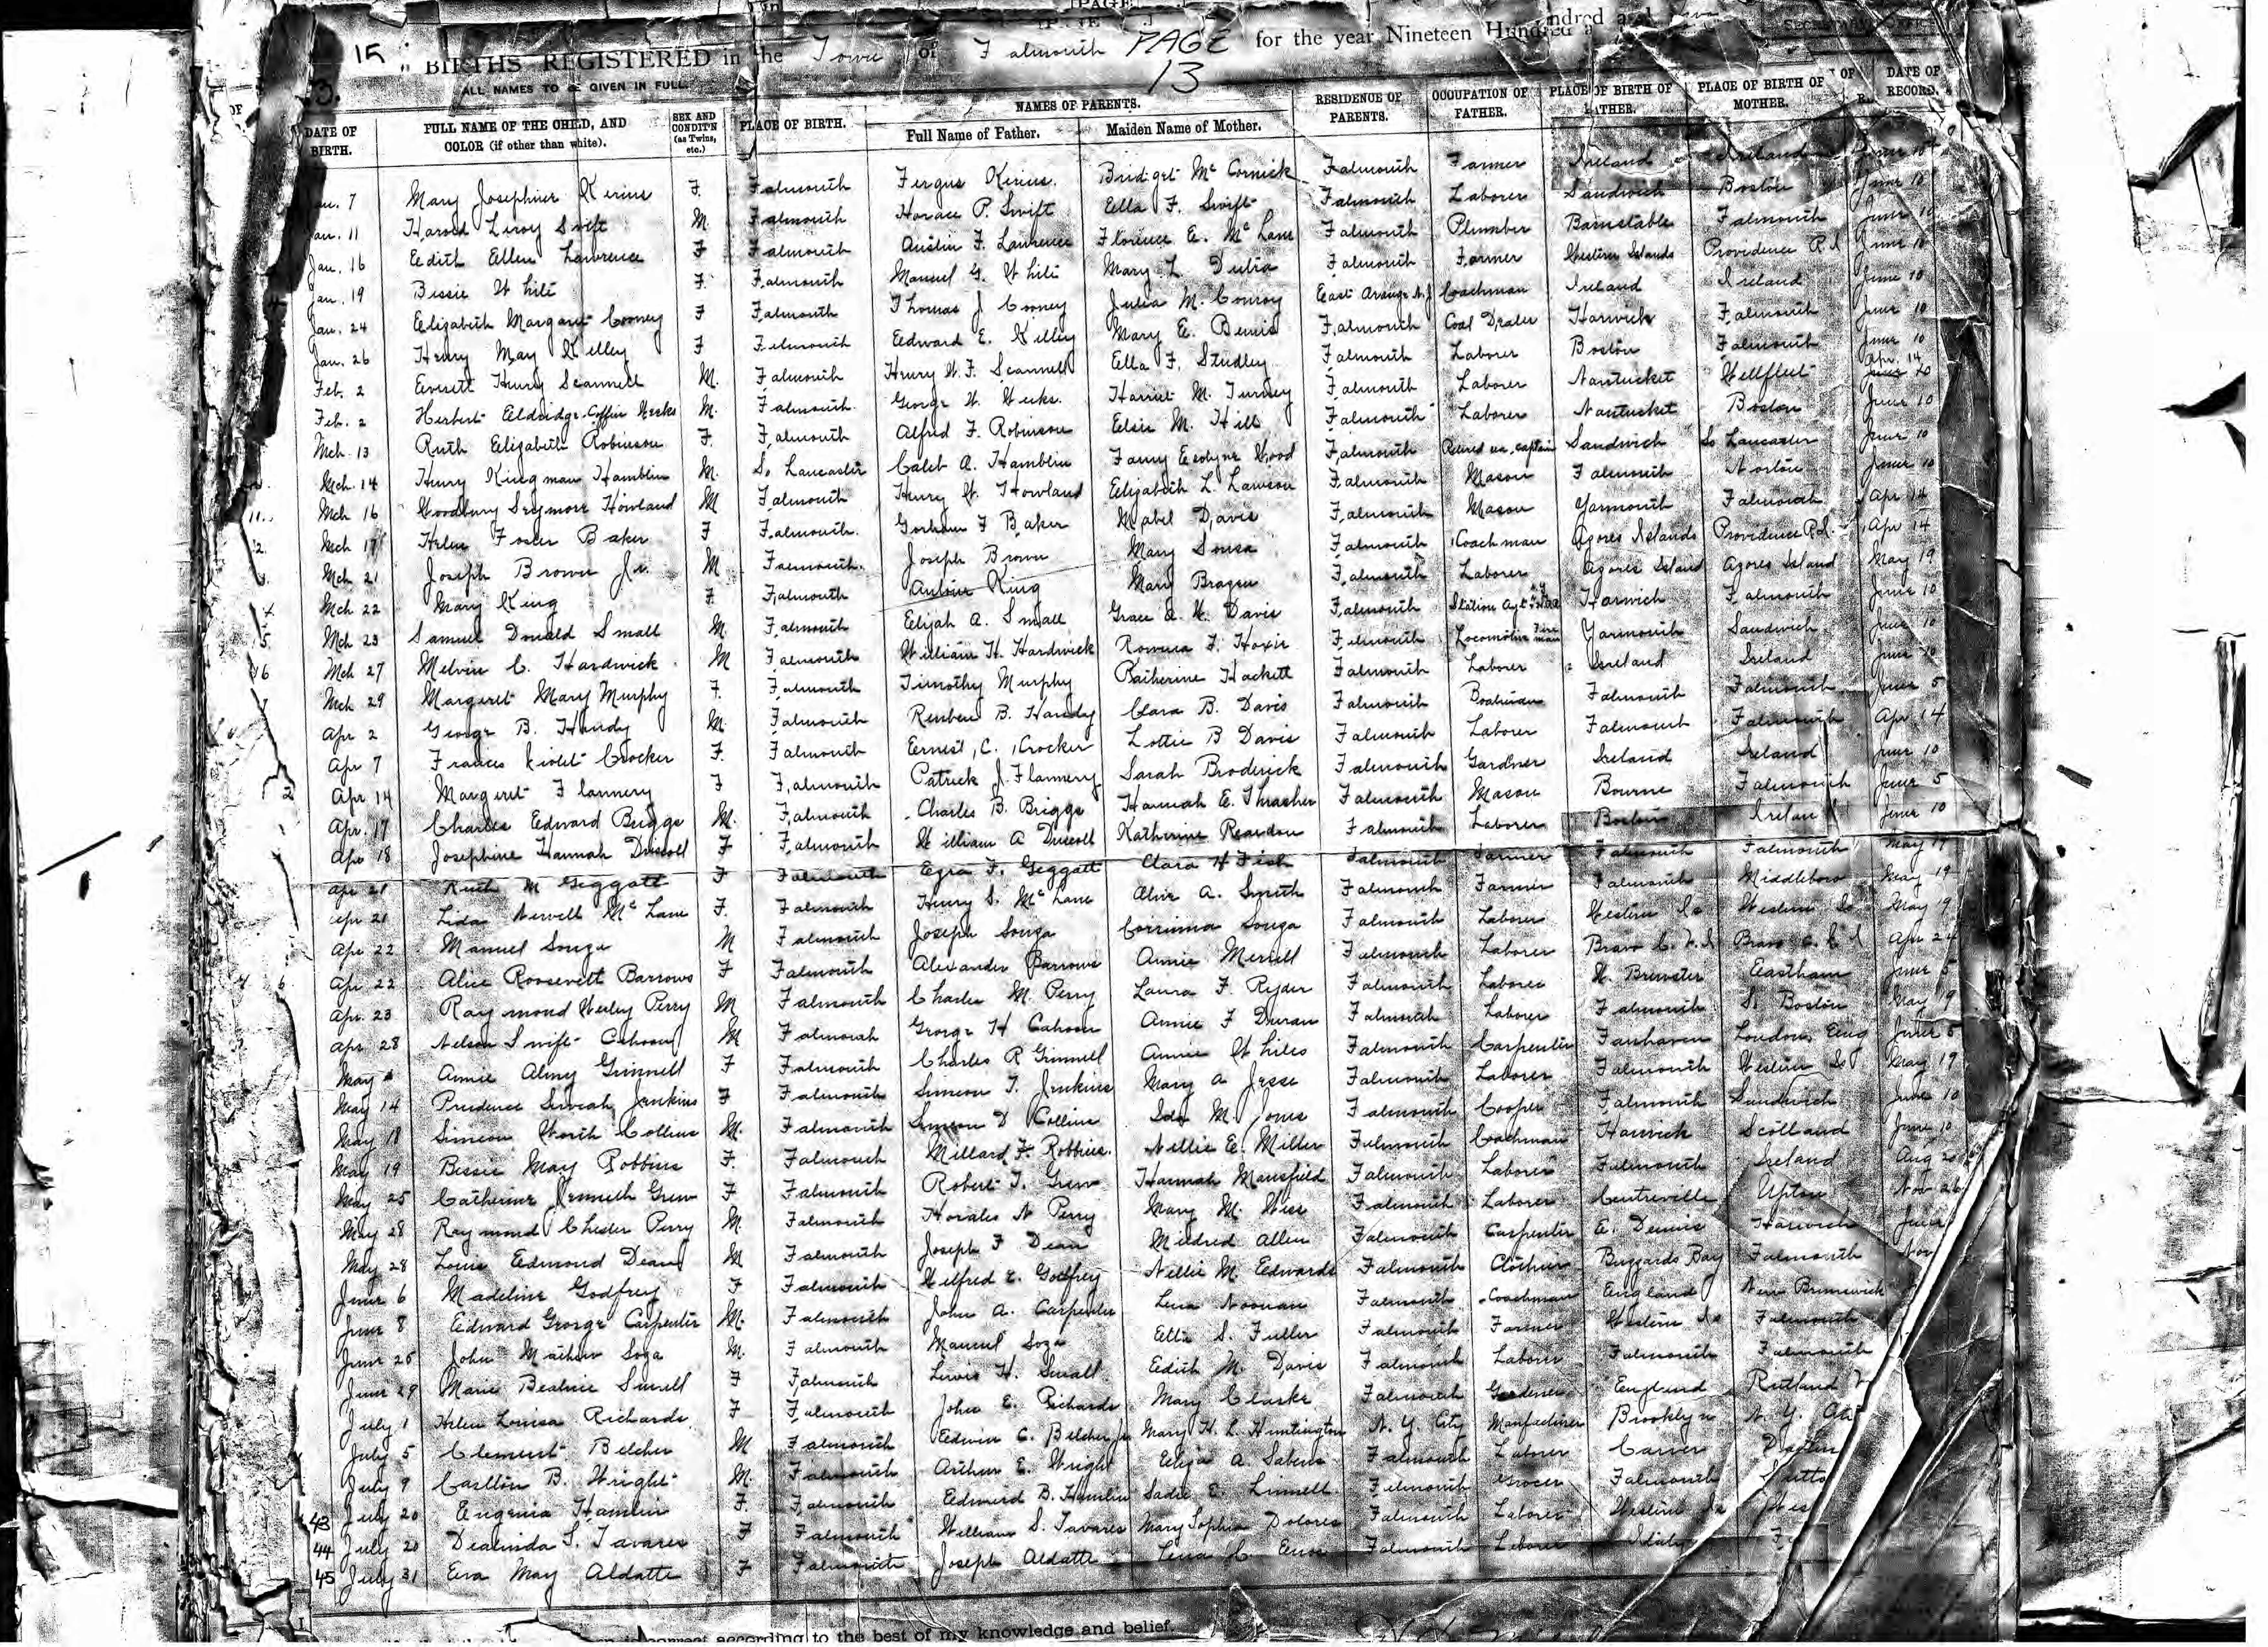 15 BIRTHS REGISTERED in the Town of Falmouth PAGE 13 for the year Nineteen Hundred
ALL NAMES TO BE GIVEN IN FULL.
DATE OF BIRTH. FULL NAME OF THE CHILD, AND COLOR (if other than white). SEX AND CONDIT'N (as Twins, etc.) PLACE OF BIRTH. NAMES OF PARENTS. Full Name of Father. Maiden Name of Mother. RESIDENCE OF PARENTS. OCCUPATION OF FATHER. PLACE OF BIRTH OF FATHER. PLACE OF BIRTH OF MOTHER. DATE OF RECORD.
7 Mary Josephine Kerins F. Falmouth Fergus Kerins. Bridget McCormick Falmouth Farmer Ireland Ireland June 10
Jan. 11 Harold Leroy Swift M Falmouth Horace P. Swift Ella F. Swift Falmouth Laborer Sandwich Boston June 10
Jan. 16 Edith Ellen Lawrence F Falmouth Austin F. Lawrence Florence E. McLane Falmouth Plumber Barnstable Falmouth June 10
Jan. 19 Bessie White F. Falmouth Manuel G. White Mary L. Dutra Falmouth Farmer Western Islands Providence R.I June 10
Jan. 24 Elizabeth Margaret Cooney F Falmouth Thomas J Cooney Julia M. Conroy East Orange N.J Coachman Ireland Ireland June 10
Jan. 26 Henry May Kelley F Falmouth Edward E. Kelley Mary E. Bemis Falmouth Coal Dealer Harwich Falmouth June 10
Feb. 2 Everett Henry Scannell M. Falmouth Henry W. F. Scannell Ella F. Studley Falmouth Laborer Boston Falmouth June 10
Feb. 2 Herbert Eldridge Coffin Weeks M. Falmouth George W. Weeks. Harriet M. Turney Falmouth Laborer Nantucket Wellfleet Apr. 14
Mch. 13 Ruth Elizabeth Robinson F. Falmouth Alfred F. Robinson Elsie M. Hill Falmouth Laborer Nantucket Boston June 10
Mch. 14 Henry Kingman Hamblin M. So Lancaster Caleb A. Hamblin Fanny Wood Falmouth Retired sea captain Sandwich So Lancaster June 10
11. Mch 16 Woodbury Seymore Howland M Falmouth Henry W. Howland Elizabeth L. Lawson Falmouth Mason Falmouth June 10
2. Mch 17 Helen Foster Baker F Falmouth. Gorham F Baker Mabel Davis Falmouth Mason Yarmouth Falmouth Apr 14
3. Mch 21 Joseph Brown Jr. M Falmouth. Joseph Brown Mary Sousa Falmouth Coachman Azores Islands Providence R.I. Apr 14
4 Mch 22 Mary King F. Falmouth Antone King Mary Bragen Falmouth Laborer Azores Island Azores Island May 19
5. Mch 23 Samuel Donald Small M. Falmouth Elijah A. Small Grace A. W. Davis Falmouth Station Agt Harwich Falmouth June 10
6 Mch 27 Melvin C. Hardwick M Falmouth William H. Hardwick Rowena F. Hoxie Falmouth Locomotive Fireman Yarmouth Sandwich June 10
Mch 29 Margaret Mary Murphy F. Falmouth Timothy Murphy Catherine Hackett Falmouth Laborer Ireland Ireland June 10
Apr 2 George B. Handy M. Falmouth Reuben B. Handy Clara B. Davis Falmouth Boatman Falmouth Falmouth June 5
Apr 7 Frances Violet Crocker F. Falmouth Ernest C. Crocker Lottie B Davis Falmouth Laborer Falmouth Falmouth Apr 14
2 Apr 14 Margaret Flannery F Falmouth Patrick J. Flannery Sarah Broderick Falmouth Gardner Ireland Ireland June 10
Apr. 17 Charles Edward Briggs M. Falmouth Charles B. Briggs Hannah E. Thrasher Falmouth Mason Bourne Falmouth June 5
Apr 18 Josephine Hannah Driscoll F Falmouth William A Driscoll Katherine Reardon Falmouth Laborer Boston Ireland June 10
Apr 21 Ruth M Geggatt F Falmouth Ezra F. Geggatt Clara H Fish Falmouth Farmer Falmouth Falmouth May 19
Apr 21 Leda Newell McLane F. Falmouth Henry S. McLane Alice A. Smith Falmouth Farmer Falmouth Middleboro May 19
Apr 22 Manuel Souza M Falmouth Joseph Souza Corrinna Souza Falmouth Laborer Western Is Western Is May 19
6 Apr 22 Alice Roosevelt Barrows F Falmouth Alexander Barrows Annie Merrill Falmouth Laborer Bravo C. V. I Bravo C. V. I Apr 24
Apr. 23 Raymond Wesley Perry M Falmouth Charles M. Perry Laura F. Ryder Falmouth Laborer W. Brewster Eastham June 5
Apr 28 Nelson Swift Cahoon M Falmouth George H Cahoon Annie F Duran Falmouth Laborer Falmouth So Boston May 19
May Annie Almy Grinnell F Falmouth Charles R Grinnell Annie Whiles Falmouth Carpenter Fairhaven London, Eng June 5
May 14 Prudence Jenkins F Falmouth Simeon T. Jenkins Mary A Jesse Falmouth Laborer Falmouth Western Is May 19
May 18 Simeon Worth Collins M. Falmouth Simeon D Collins Ida M. Jones Falmouth Cooper Falmouth Sandwich June 10
May 19 Bessie May Robbins F. Falmouth Millard F. Robbins. Nellie E. Miller Falmouth Coachman Harwich Scotland June 10
May 25 Catherine Grew F Falmouth Robert T. Grew Hannah Mansfield Falmouth Laborer Falmouth Ireland Aug 20
May 28 Raymond Chester Perry M Falmouth Horatio N Perry Mary M. Falmouth Laborer Centreville Upton Nov 26
May 28 Louis Edmond Dean M Falmouth Joseph F Dean Mildred Allen Falmouth Carpenter E. Dennis Harwich June
June 6 Madeline Godfrey F Falmouth Wilfred E. Godfrey Nellie M. Edwards Falmouth Clothier Buzzards Bay Falmouth Nov
June 8 Edward George Carpenter M. Falmouth John A. Carpenter Lena Noonan Falmouth Coachman England New Brunswick
June 25 John Mathew Soza M. Falmouth Manuel Soza Ellie S. Fuller Falmouth Farmer Western Is Falmouth
June 29 Marie Beatrice Small F Falmouth Lewis H. Small Edith M. Davis Falmouth Laborer Falmouth Falmouth
July 1 Helen Louisa Richards F Falmouth John E. Richards Mary Clarke Falmouth Gardener England Rutland
July 5 Clement Belcher M Falmouth Edwin C. Belcher Jr Mary H. L. Huntington N. Y. City Manufacturer Brooklyn N. Y. City
July 9 Carlton B. Wright M. Falmouth Arthur E. Wright Eliza A. Falmouth Laborer Carver
43 July 20 Eugenia Hamlin F. Falmouth Edmund B. Hamlin Sadie E. Linnell Falmouth Grocer Falmouth
44 July 20 Dealinda S. Tavares F Falmouth William S. Tavares Mary Sophia Dolores Falmouth Laborer Western Is
45 July 31 Eva May Aldatte F Falmouth Joseph Aldatte Lena C. Enos Falmouth Laborer Italy F
correct according to the best of my knowledge and belief.